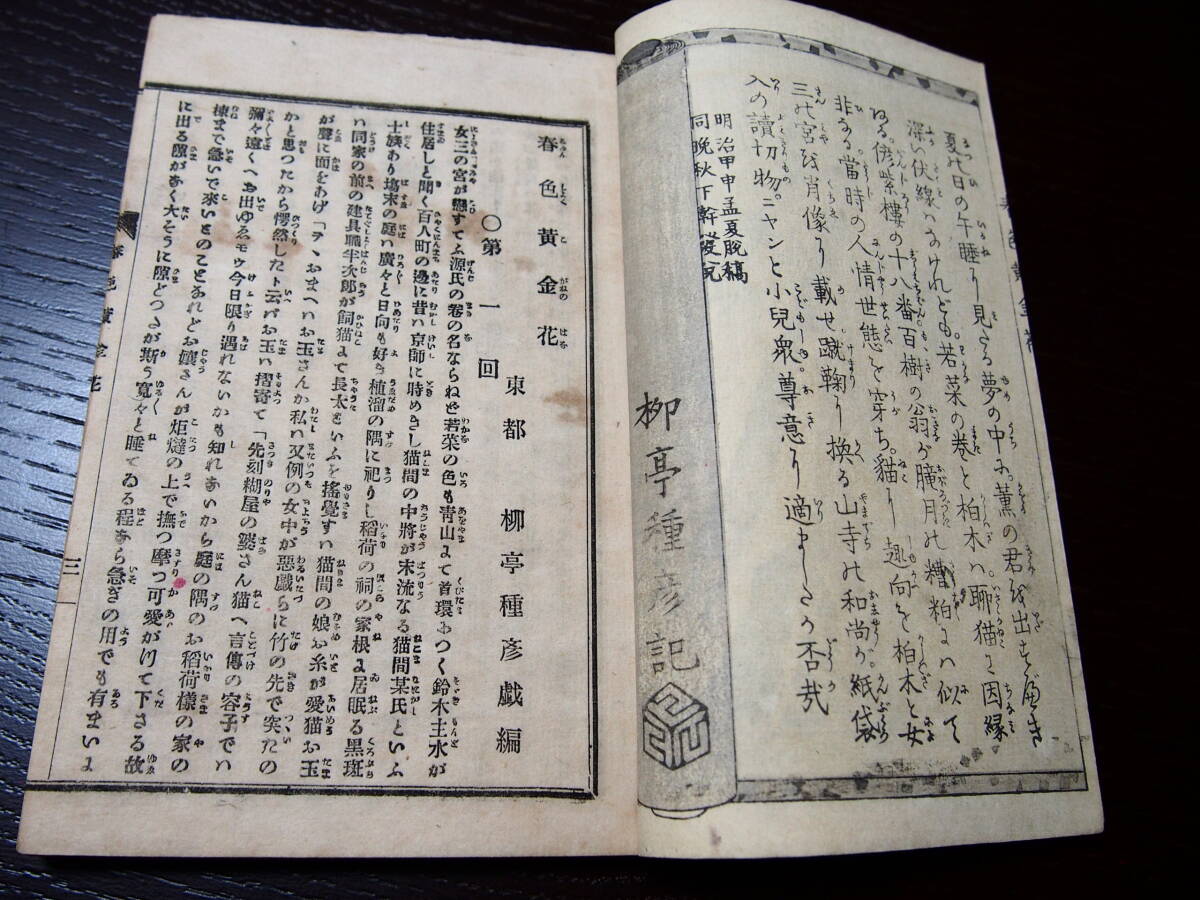 夏の日の午睡に見たる夢の中に。薫の君を出すべき
深い伏線はなけれども。若菜の巻と柏木は。聊猫に因縁
ある偐紫樓の十八番百樹の翁が朧月の糟粕には似て
非なる當時の人情世態を穿ち。猫に趣向を柏木と女
三の宮を肖像に載せ蹴鞠に換る山寺の和尚が。紙袋
入の讀切物。ニャンと小兒衆。尊意に適ましたか否哉
明治甲申孟夏脱稿
同晩秋下幹發兌
柳亭種彦記
春色黄金花
東都 柳亭種彦戯編
○第一回
女三の宮が戀すてふ源氏の卷の名ならねど若菜の色も青山に首環おつく鈴木主水が
住居しと聞く百人町の邊に昔は京師に時めきし猫間の中將が末流なる猫間某氏といふ
士族あり塲末の庭は廣々と日向も好き植溜の隅に祀りし稻荷の祠の家根に居眠る黒斑
は同家の前の建具職半次郎が飼猫にて長太といふを搖覺すは猫間の娘お糸が愛猫お玉
が聲に面をあげ「ヲヽおまへはお玉さんか私は又例の女中が惡戯らに竹の先で突たの
かと思つたから愕然したト云バお玉は摺寄て「先刻糊屋の婆さん猫へ言傳の容子では
彌々遠くへお出ゆゑモウ今日限り遇れないかも知れないから庭の隅のお稻荷樣の家の
棟まで急いで來いとのことなれどお孃さんが炬燵の上で撫つ摩つ可愛がつて下さる故
に出る隙がなく大そうに隙どつたが斯う寛々と睡てゐる程なら急ぎの用でも有まいよ
春色黄金花
三